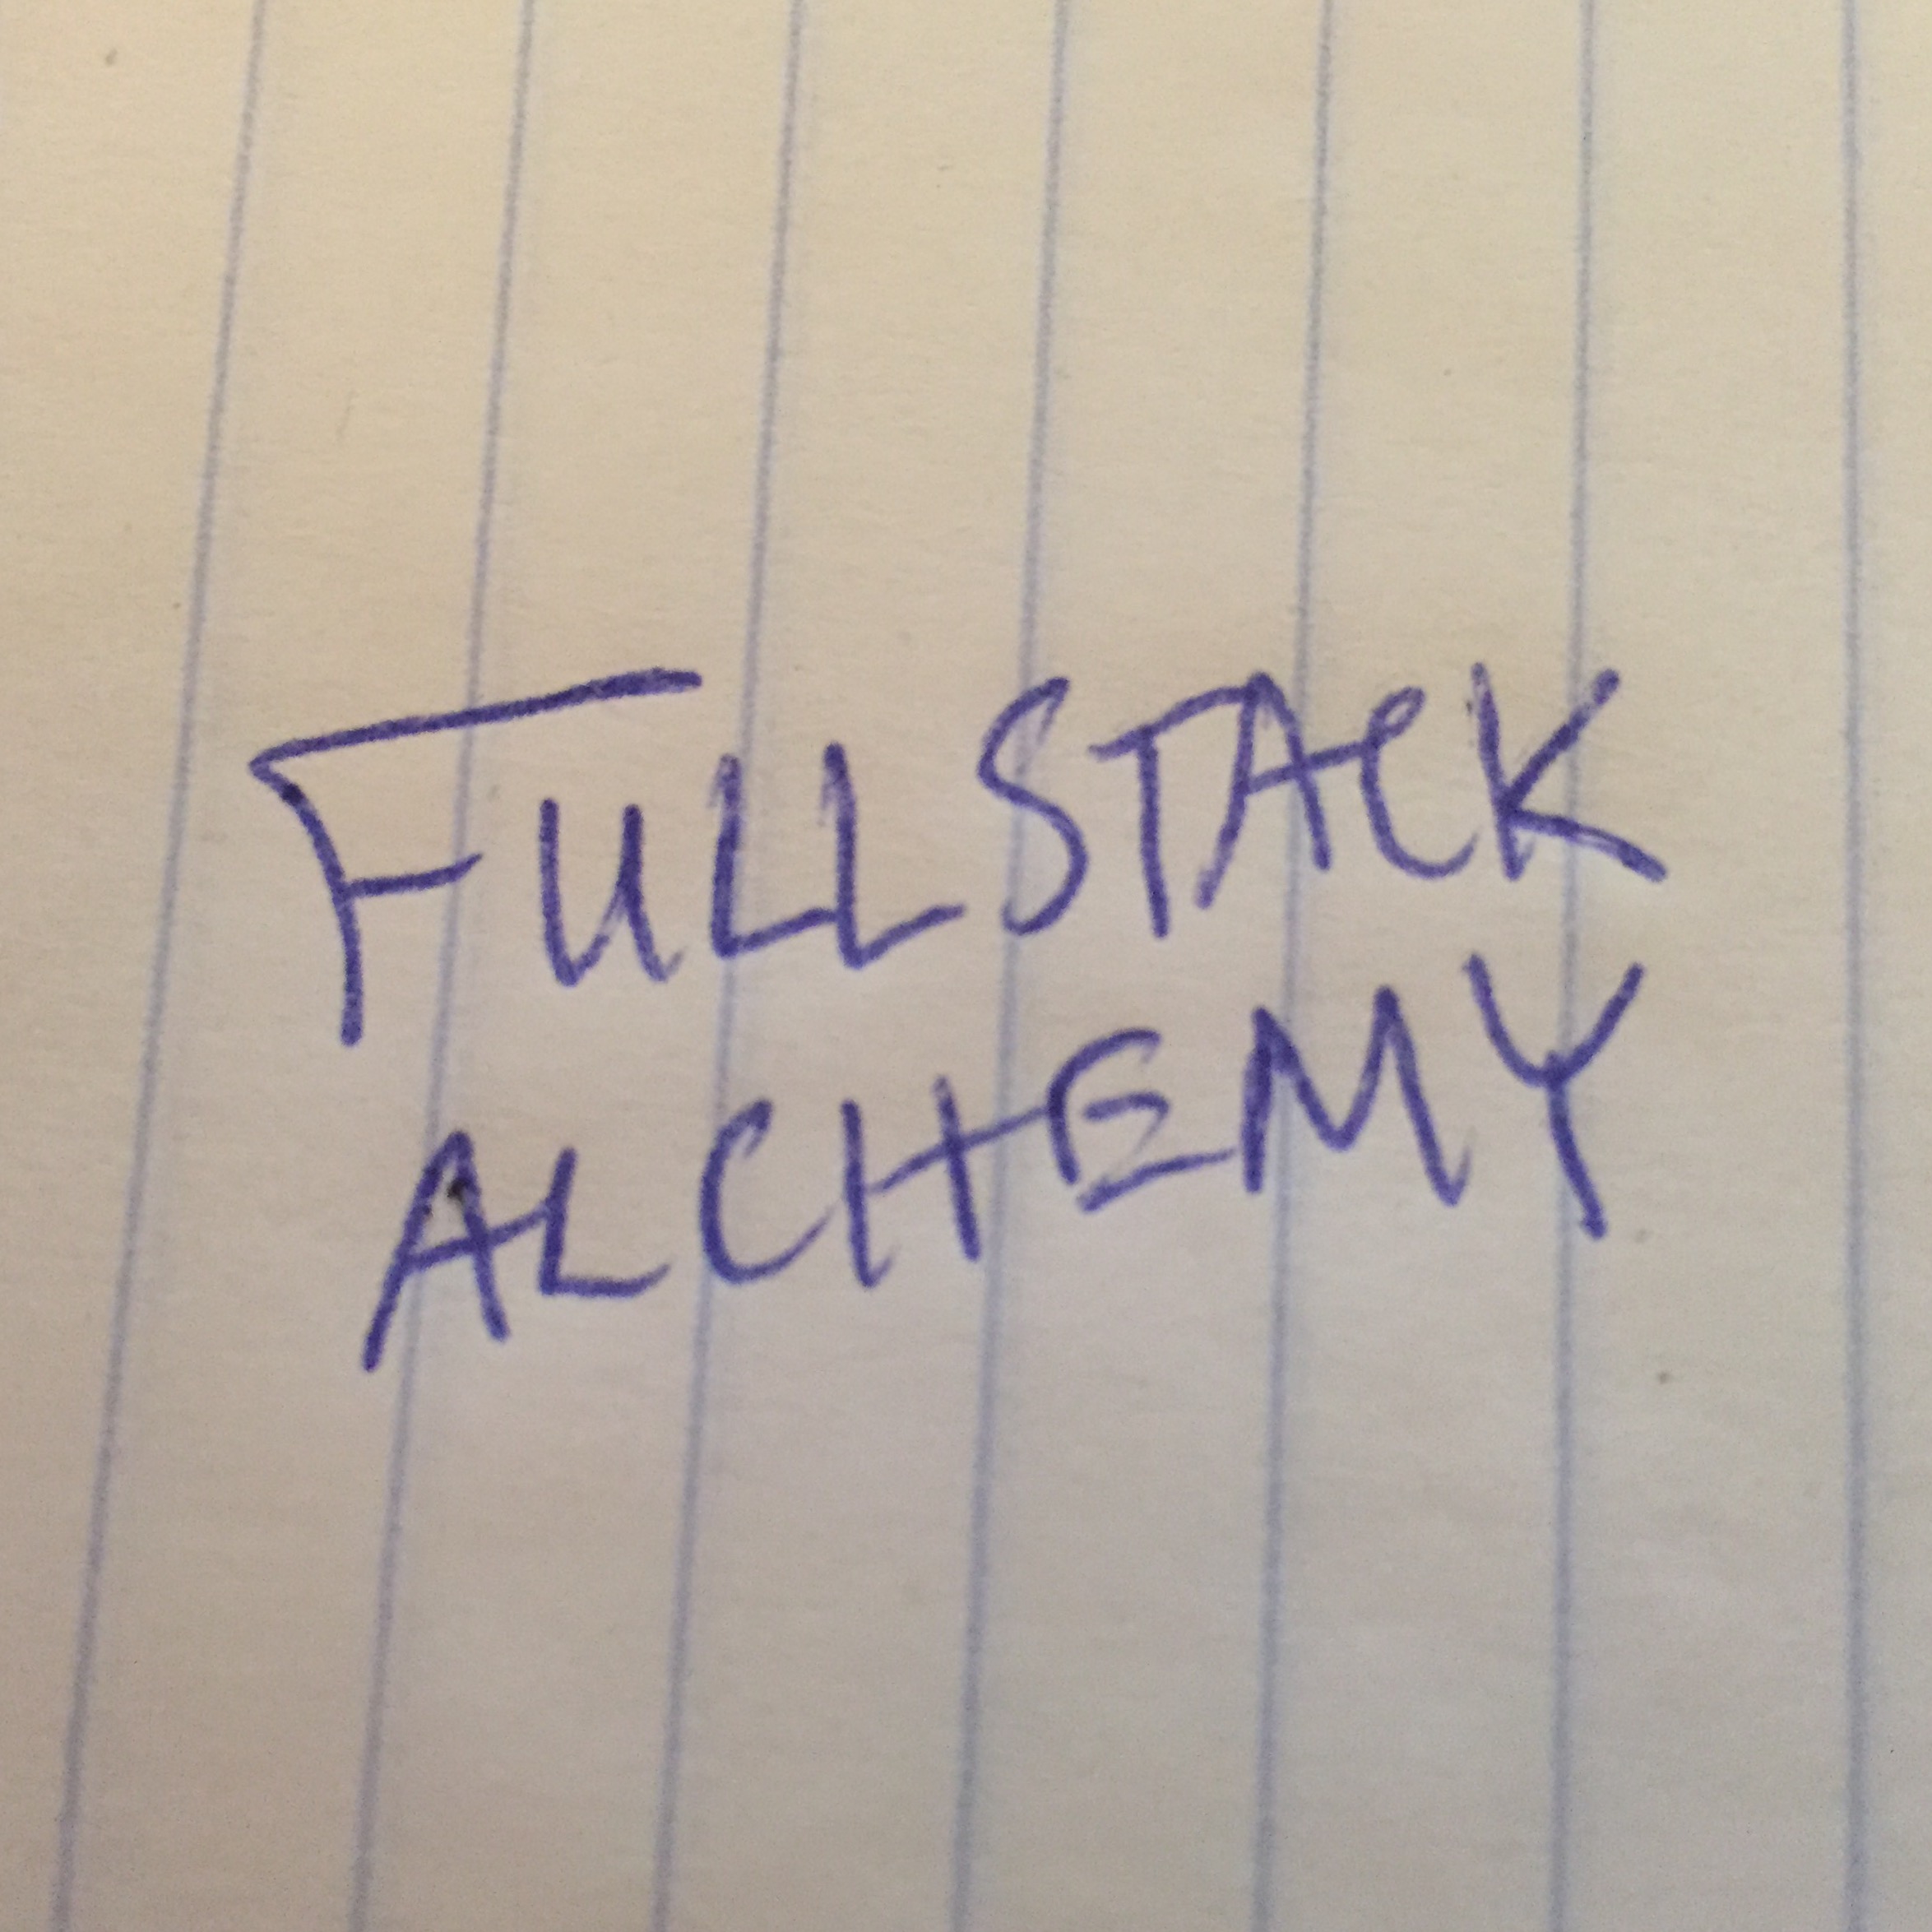 FULLSTACK
ALCHEMY